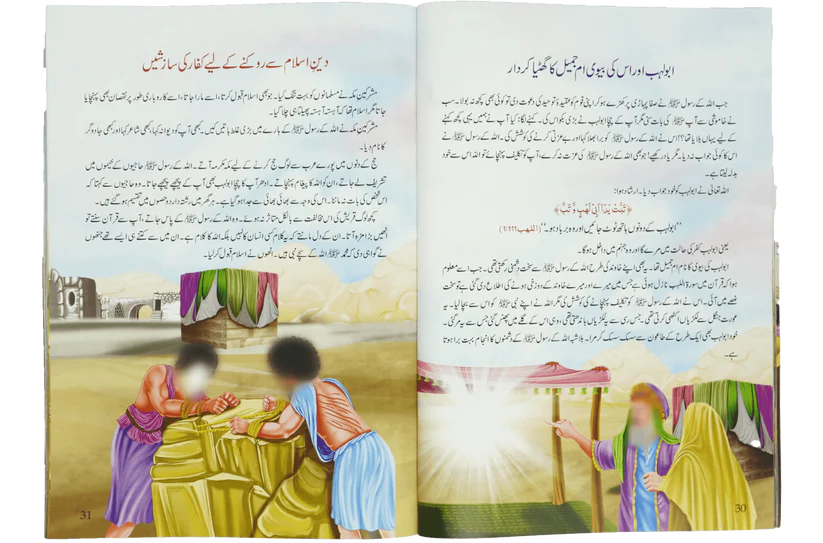 ابولہب اور اس کی بیوی ام جمیل کا گھٹیا کردار
جب اللہ کے رسول ﷺ نے صفا پہاڑی پر کھڑے ہو کر اپنی قوم کو عقیدۂ توحید کی دعوت دی تو کوئی بھی کچھ نہ بولا۔ سب
نے خاموشی سے آپ ﷺ کی بات سنی مگر آپ کے چچا ابولہب نے بڑی بکواس کی۔ کہنے لگا: کیا آپ نے ہمیں یہی کچھ کہنے
کے لیے یہاں بلایا تھا؟ اس نے اللہ کے رسول ﷺ کو برا بھلا کہا اور بے عزتی کرنے کی کوشش کی۔ اللہ کے رسول ﷺ نے
اس کا کوئی جواب نہ دیا۔ مگر یاد رکھیے! جو بھی اللہ کے رسول ﷺ کی عزت نہ کرے، آپ کو تکلیف پہنچائے تو اللہ اس سے خود
بدلہ لیتا ہے۔
اللہ تعالیٰ نے ابولہب کو خود جواب دیا۔ ارشاد ہوا:
﴿تَبَّتْ يَدَآ اَبِيْ لَهَبٍ وَّتَبَّ﴾
''ابولہب کے دونوں ہاتھ ٹوٹ جائیں اور وہ برباد ہو۔'' (اللھب 1:111)
یعنی ابولہب کفر کی حالت میں مرے گا اور وہ جہنم میں داخل ہوگا۔
ابولہب کی بیوی کا نام ام جمیل تھا۔ یہ بھی اپنے خاوند کی طرح اللہ کے رسول ﷺ سے سخت دشمنی رکھتی تھی۔ جب اسے معلوم
ہوا کہ قرآن میں سورۃ اللہب نازل ہوئی ہے جس میں میرے اور میرے خاوند کے دوزخی ہونے کی اطلاع دی گئی ہے تو سخت
غصے میں آئی۔ اس نے اللہ کے رسول ﷺ کو تکلیف پہنچانے کی کوشش کی مگر اللہ نے اپنے نبی ﷺ کو اس سے بچا لیا۔ یہ
عورت جنگل سے لکڑیاں اکٹھی کرتی تھی۔ جس رسی سے یہ لکڑیاں باندھتی تھی، وہی اس کے گلے میں پھنس گئی جس سے یہ مر گئی۔
خود ابولہب بھی ایک طرح کے طاعون سے سسک سسک کر مرا۔ بلاشبہ اللہ کے رسول ﷺ کے دشمنوں کا انجام بہت برا ہوتا
ہے۔
30
دینِ اسلام سے روکنے کے لیے کفار کی سازشیں
مشرکین مکہ نے مسلمانوں کو بہت تنگ کیا۔ جو بھی اسلام قبول کرتا، اسے مارا جاتا، اسے کاروباری طور پر نقصان بھی پہنچایا
جاتا مگر اسلام تھا کہ آہستہ آہستہ پھیلتا ہی چلا گیا۔
مشرکین مکہ نے اللہ کے رسول ﷺ کے بارے میں بڑی غلط باتیں کیں۔ کبھی آپ کو دیوانہ کہا، کبھی شاعر کہا اور کبھی جادوگر
کا نام دیا۔
حج کے دنوں میں پورے عرب سے لوگ حج کرنے کے لیے مکہ مکرمہ آتے۔ اللہ کے رسول ﷺ حاجیوں کے خیموں میں
تشریف لے جاتے، ان کو اللہ کا پیغام پہنچاتے۔ ادھر آپ کا چچا ابولہب بھی آپ کے پیچھے پیچھے جاتا۔ وہ حاجیوں سے کہتا کہ
اس شخص کی بات نہ ماننا۔ اس کی وجہ سے بھائی بھائی سے جدا ہو گیا ہے۔ ہر گھر میں رشتہ دار دو حصوں میں تقسیم ہو گئے ہیں۔
کچھ لوگ قریش کی اس مخالفت سے بالکل متاثر نہ ہوئے۔ وہ اللہ کے رسول ﷺ کے پاس جاتے، آپ سے قرآن سنتے تو
انھیں بڑا مزہ آتا۔ ان کے دل مانتے کہ یہ کلام کسی انسان کا نہیں بلکہ اللہ کا کلام ہے۔ ان میں سے کتنے ہی ایسے تھے جنھوں
نے گواہی دی کہ محمد ﷺ اللہ کے سچے نبی ہیں۔ انھوں نے اسلام قبول کر لیا۔
31